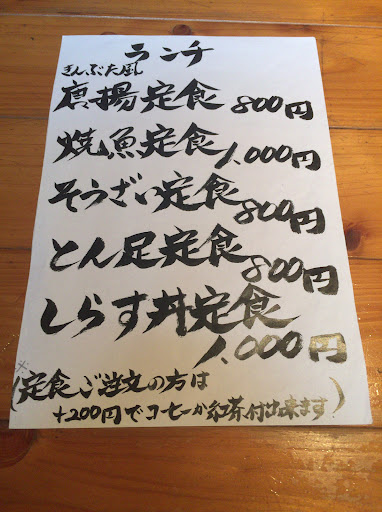 ランチ
きんぶた風
唐揚定食 800円
焼魚定食 1,000円
そうざい定食 800円
とん足定食 800円
しらす丼定食
1,000円
※
(定食ご注文の方は
+200円でコーヒーか紅茶付け出来ます)